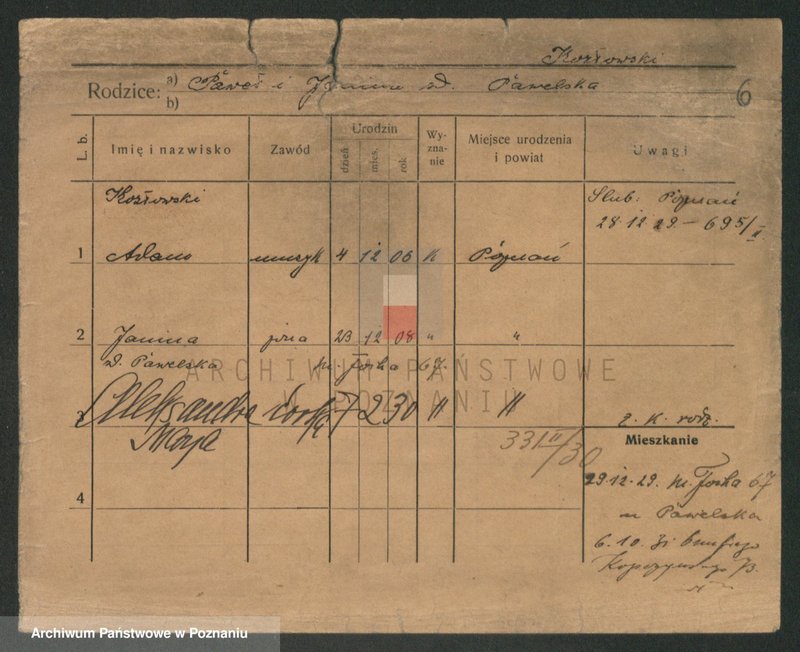 Kozłowski
Rodzice: a) Paweł i Janina d. Pawelska
b)
6
L. b.
Imię i nazwisko
Zawód
Urodzin
dzień
mies.
rok
Wy-
zna-
nie
Miejsce urodzenia
i powiat
Uwagi
Kozłowski
Ślub: Poznań
28 12 29 – 695/II
1 Adam muzyk 4 12 06 K Poznań
2 Janina żona 23 12 08 " "
d. Pawelska Focha 67.
ARCHIWUM PAŃSTWOWE
W POZNANIU
3 Aleksandra córka 7 2 30 " "
Maja
331/II/30
ż. k. rodz.
Mieszkanie
29.12.29. Focha 67
u Pawelska
4
6. 10. 31
Archiwum Państwowe w Poznaniu